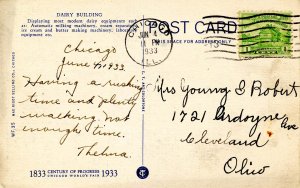 DAIRY BUILDING
Displaying most modern dairy equipments such
as: Automatic milking machinery, cream separators,
ice cream and butter making machinery, laboratory
equipment etc.
POST CARD
THIS SPACE FOR ADDRESS ONLY
CHICAGO
JUN
PM
1933
ILL.
Chicago
June 1933
Having a rushing
time and plenty
walking. not
enough time.
Thelma.
Mrs Young & Robert
1721 Ardoyne Ave
Cleveland
Ohio
1833 CENTURY OF PROGRESS 1933
CHICAGO WORLD'S FAIR